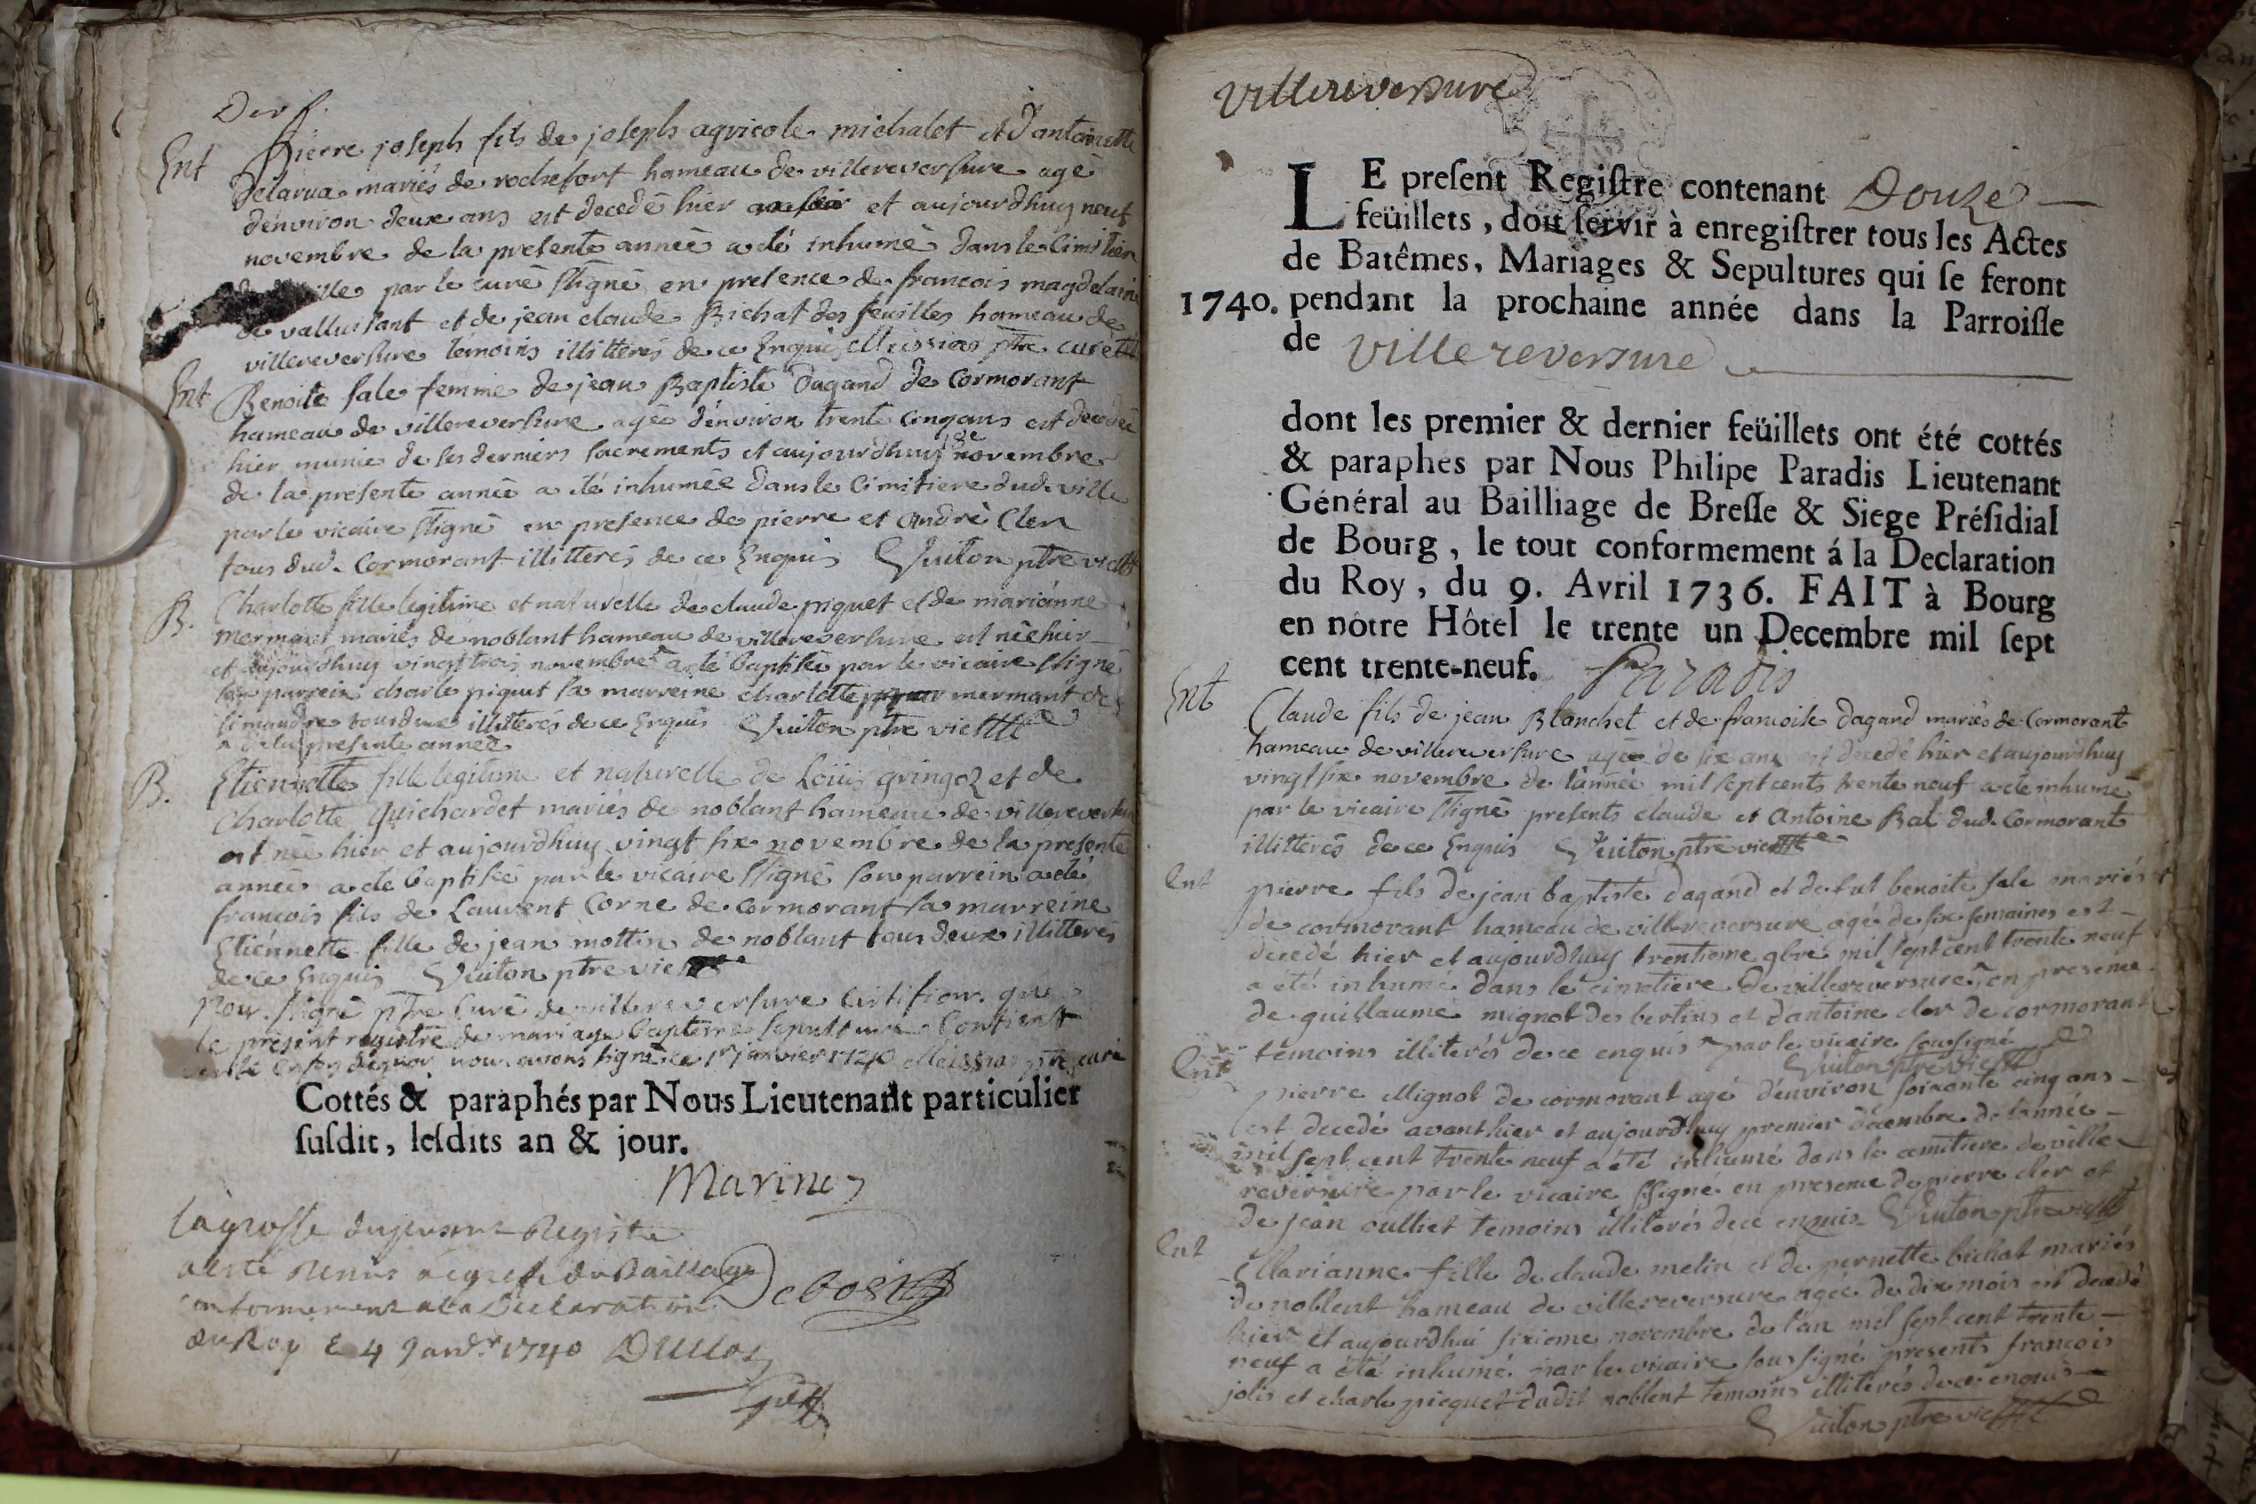 Der f.
Ent Pierre joseph fils de joseph agricole michalet et d'antoinette
delarua mariés de rochefort hameau de villereversure agé
d'environ deux ans est decedé hier et aujourdhuy neuf
novembre de la presente année a eté inhumé dans le Cimitiere
ville par le curé ssigné en presence de francois magdelaine
de valluisant et de jean claude Bichat des feuilles hameau de
villereversure témoins illitterés de ce Enquis Meissiat ptre curé
Ent Benoite sale femme de jean Baptiste dagand de Cormorant
hameau de villereversure agée d'environ trente cinq ans est decedée
hier munie de ses derniers sacrements et aujourdhuy novembre
de la presente année a eté inhumée dans le Cimitiere dud. ville
par le vicaire ssigné en presence de pierre et andré Cler
tous dud. Cormorant illitterés de ce Enquis Guiton ptre vic
B. Charlotte fille legitime et naturelle de claude piquet et de marianne
mermant mariés de noblant hameau de villereversure est née hier
et aujourdhuy vingt trois novembre a eté baptisée par le vicaire ssigné
son parrein charle piquet sa marreine charlotte mermant de
simandre tous deux illitterés de ce Enquis Guiton ptre vic
de la presente année
B. Etiennette fille legitime et naturelle de Loüis gringoz et de
Charlotte guichardet mariés de noblant hameau de villereversure
est née hier et aujourdhuy vingt six novembre de la presente
année a eté baptisée par le vicaire ssigné son parrein a eté
francois fils de Laurent Corne de Cormorant sa marreine
Etiénnette fille de jean mottin de noblant tous deux illitteres
de ce Enquis Guiton ptre vic
Nous ssigné ptre Curé de villereversure Certifions que
le présent registre de mariage bapteme sepulture Contient
nous avons signé ce 1r janvier 1740 Meissiat ptre curé
Cottés & paraphés par Nous Lieutenant particulier
susdit, lesdits an & jour.
Marinet
La grosse du present Registre
a esté remis au greffe du Bailliage
conformement a la Declaration
du Roy Le 4 Janvr. 1740 Duclos
Villereversure
LE present Registre contenant Douze
feüillets, doit servir à enregistrer tous les Actes
de Batêmes, Mariages & Sepultures qui se feront
1740. pendant la prochaine année dans la Parroisse
de Villereversure
dont les premier & dernier feüillets ont été cottés
& paraphés par Nous Philipe Paradis Lieutenant
Général au Bailliage de Bresse & Siege Présidial
de Bourg, le tout conformement á la Declaration
du Roy, du 9. Avril 1736. FAIT à Bourg
en nôtre Hôtel le trente un Decembre mil sept
cent trente-neuf. Paradis
Ent Claude fils de jean Blanchet et de francoise dagand mariés de Cormorant
hameau de villereversure agé de six ans est decedé hier et aujourdhuy
vingt six novembre de l'année mil sept cents trente neuf a eté inhumé
par le vicaire ssigné presents claude et Antoine Bal dud. Cormorant
illitterés de ce Enquis Guiton ptre vic
Ent pierre fils de jean baptiste dagand et de fut benoite sale mariés
de cormorant hameau de villereversure agé de six semaines est
decedé hier et aujourdhuy trentieme 9bre mil sept cent trente neuf
a été inhumé dans le cimetiere de villereversure en presence
de guillaume mignot des bertins et d'antoine cler de cormorant
temoins illiterés de ce enquis par le vicaire soussigné
Guiton ptre vic
Ent pierre Mignot de cormorant agé d'environ soixante cinq ans
est decedé avanthier et aujourdhuy premier décembre de l'année
mil sept cent trente neuf a été inhumé dans le cemitiere de ville
reversure par le vicaire ssigné en presence de pierre cler et
de jean oulliet temoins illiterés de ce enquis Guiton ptre vic
Ent Marianne fille de claude melin et de pernette bichat mariés
de noblent hameau de villereversure agée de dix mois est decedé
hier et aujourdhui sixieme novembre de l'an mil sept cent trente
neuf a été inhumé par le vicaire soussigné presents francois
jolis et charle picquet dudit noblent temoins illiterés de ce enquis
Guiton ptre vic